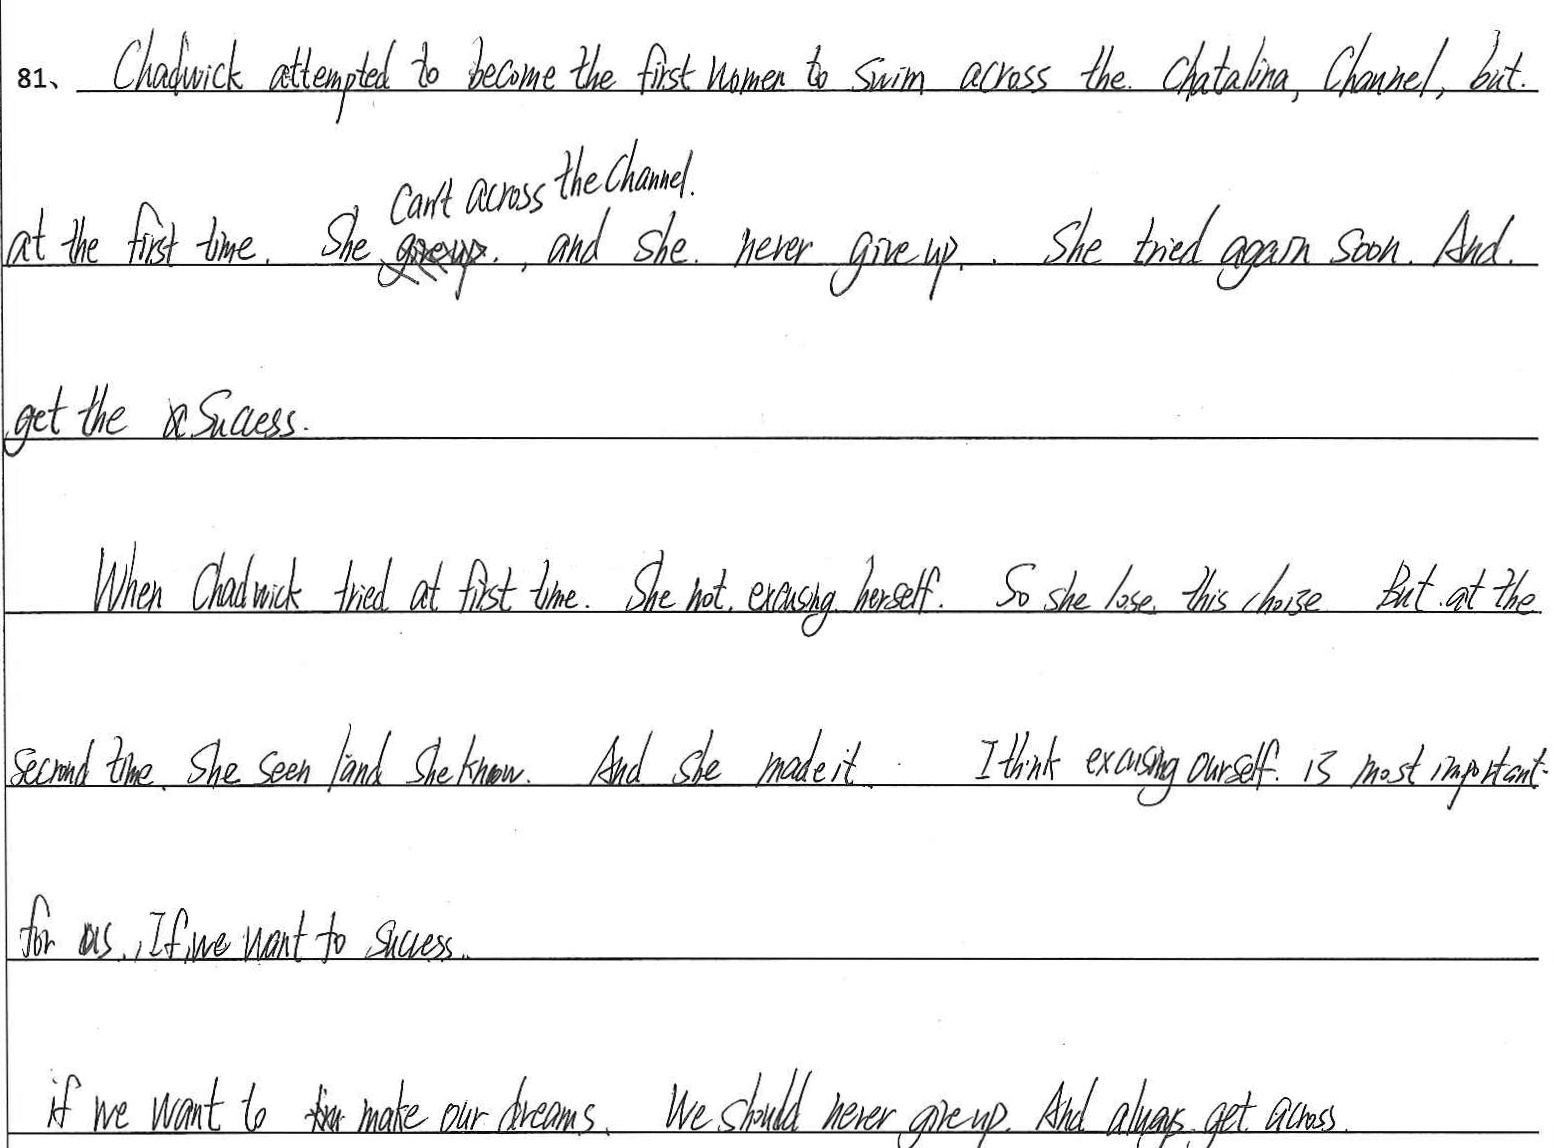 81、 Chadwick attempted to become the first women to swim across the Chatalina, Channel, but.
can't across the Channel.
at the first time. She giveup. , and she. never give up. . She tried again soon. And.
get the Success.
When Chadwick tried at first time. She not. excusing herself. So she lose this choise But at the
second time. She seen land she know. And she made it. I think excusing ourself. is most important
for us. , If we want to success..
if we want to make our dreams. We should never give up. And always get across.